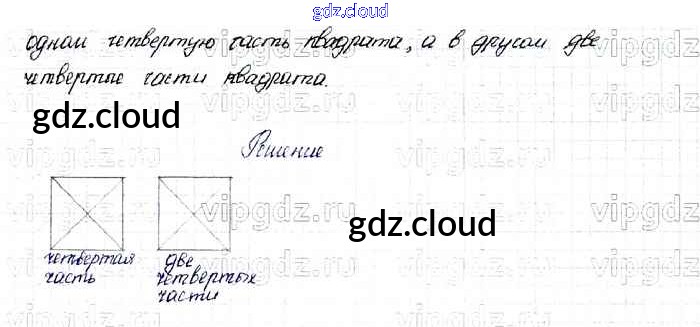 gdz.cloud
одном четвертую часть квадрата, а в другом две
четвертые части квадрата.
gdz.cloud
Решение
vipgdz.ru
gdz.cloud
четвертая две
часть четвертых
части